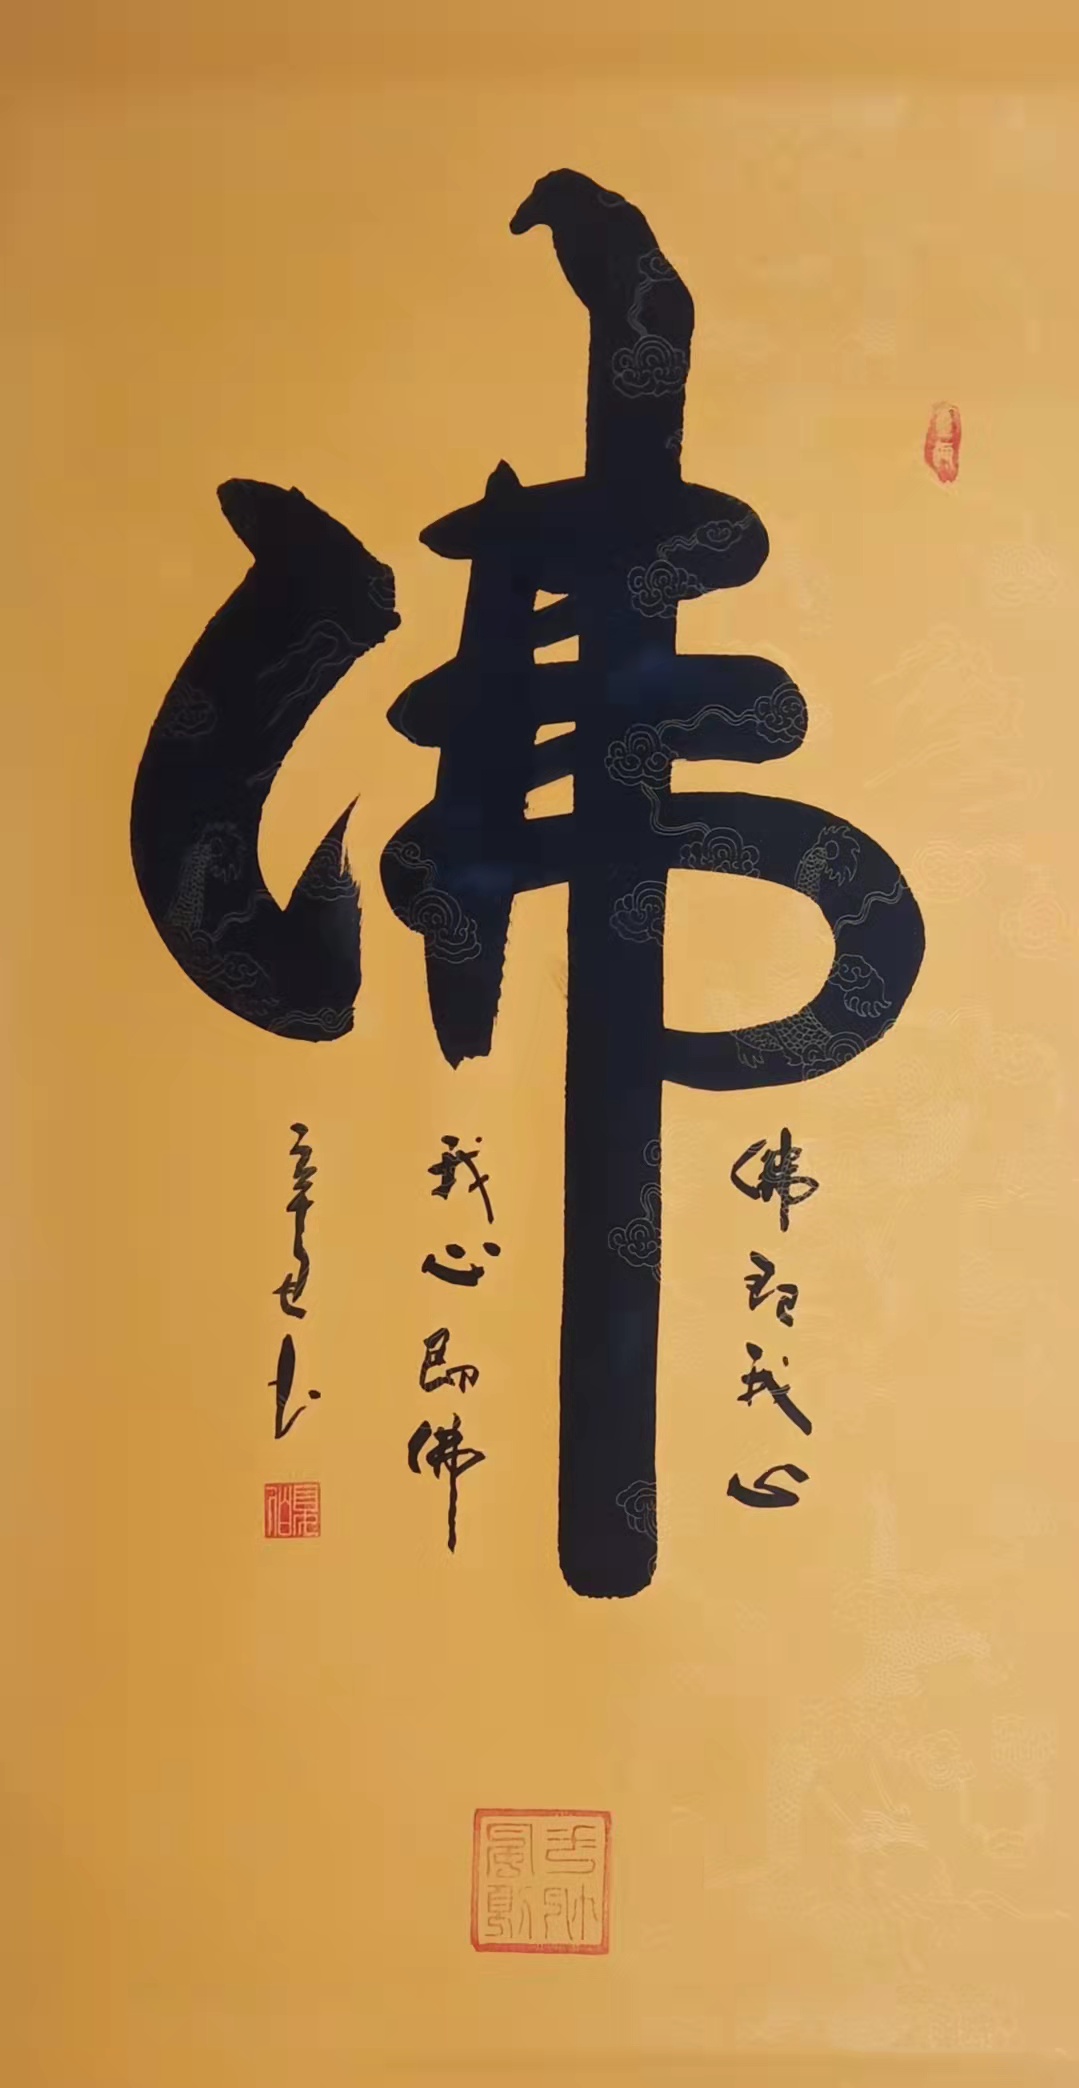 佛
佛即我心
我心即佛
辛丑书